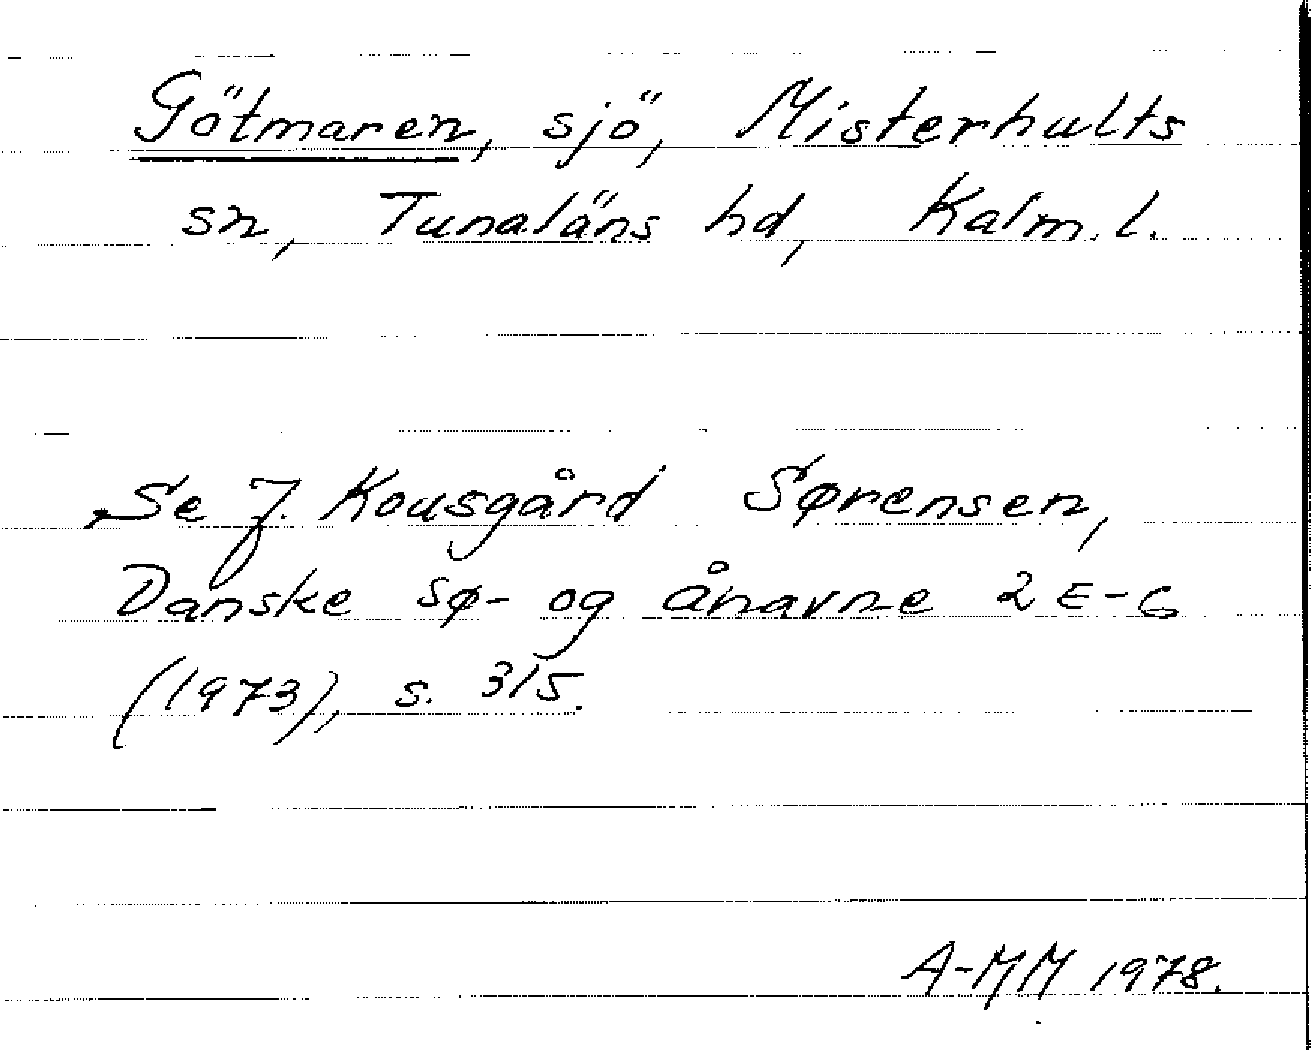 Götmaren, sjö, Misterhults
sn, Tunaläns hd, Kalm. l.
Se J. Kousgård Sørensen,
Danske sø- og ånavne 2 E-G
(1973), s. 315.
A-MM 1978.